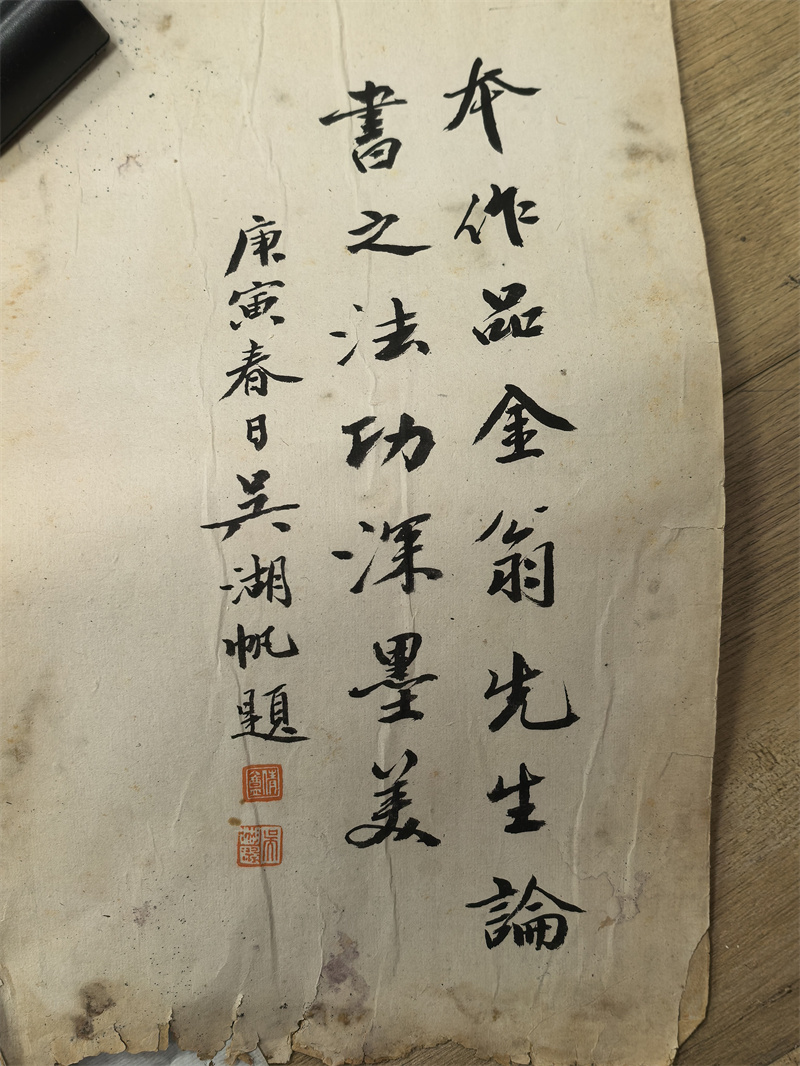 本作品金翁先生論
書之法功深墨美
庚寅春日吳湖帆題